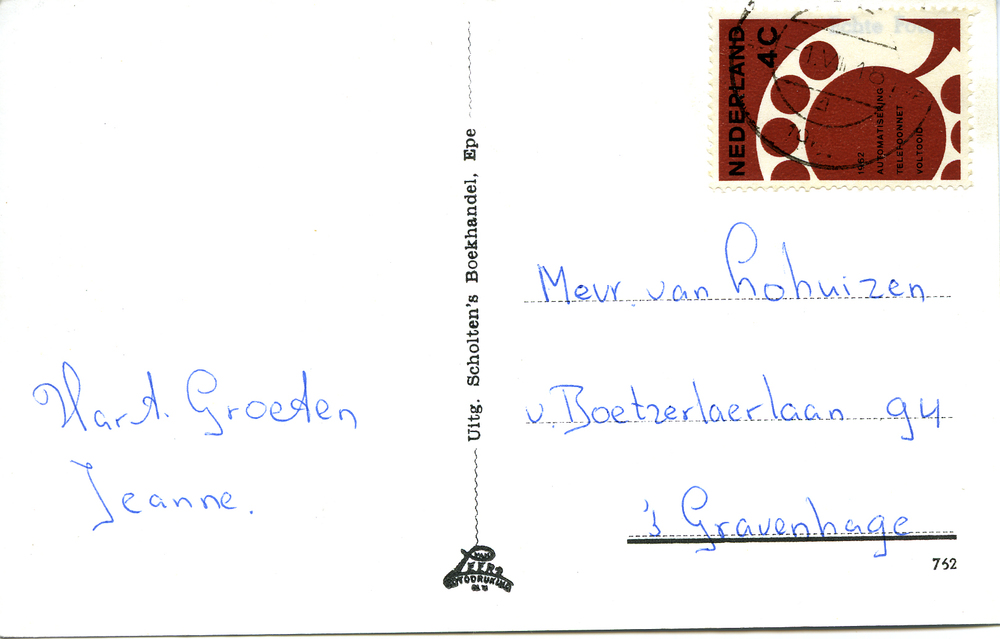 Hart. Groeten
Jeanne.
Uitg. Scholten's Boekhandel, Epe
VAN
LEER'S
FOTODRUKIND
N.V.
NEDERLAND
4C
1962
AUTOMATISERING
TELEFOONNET
VOLTOOID
1.VIII.19
Mevr. van Lohuizen
v. Boetzerlaerlaan 94
's Gravenhage
752